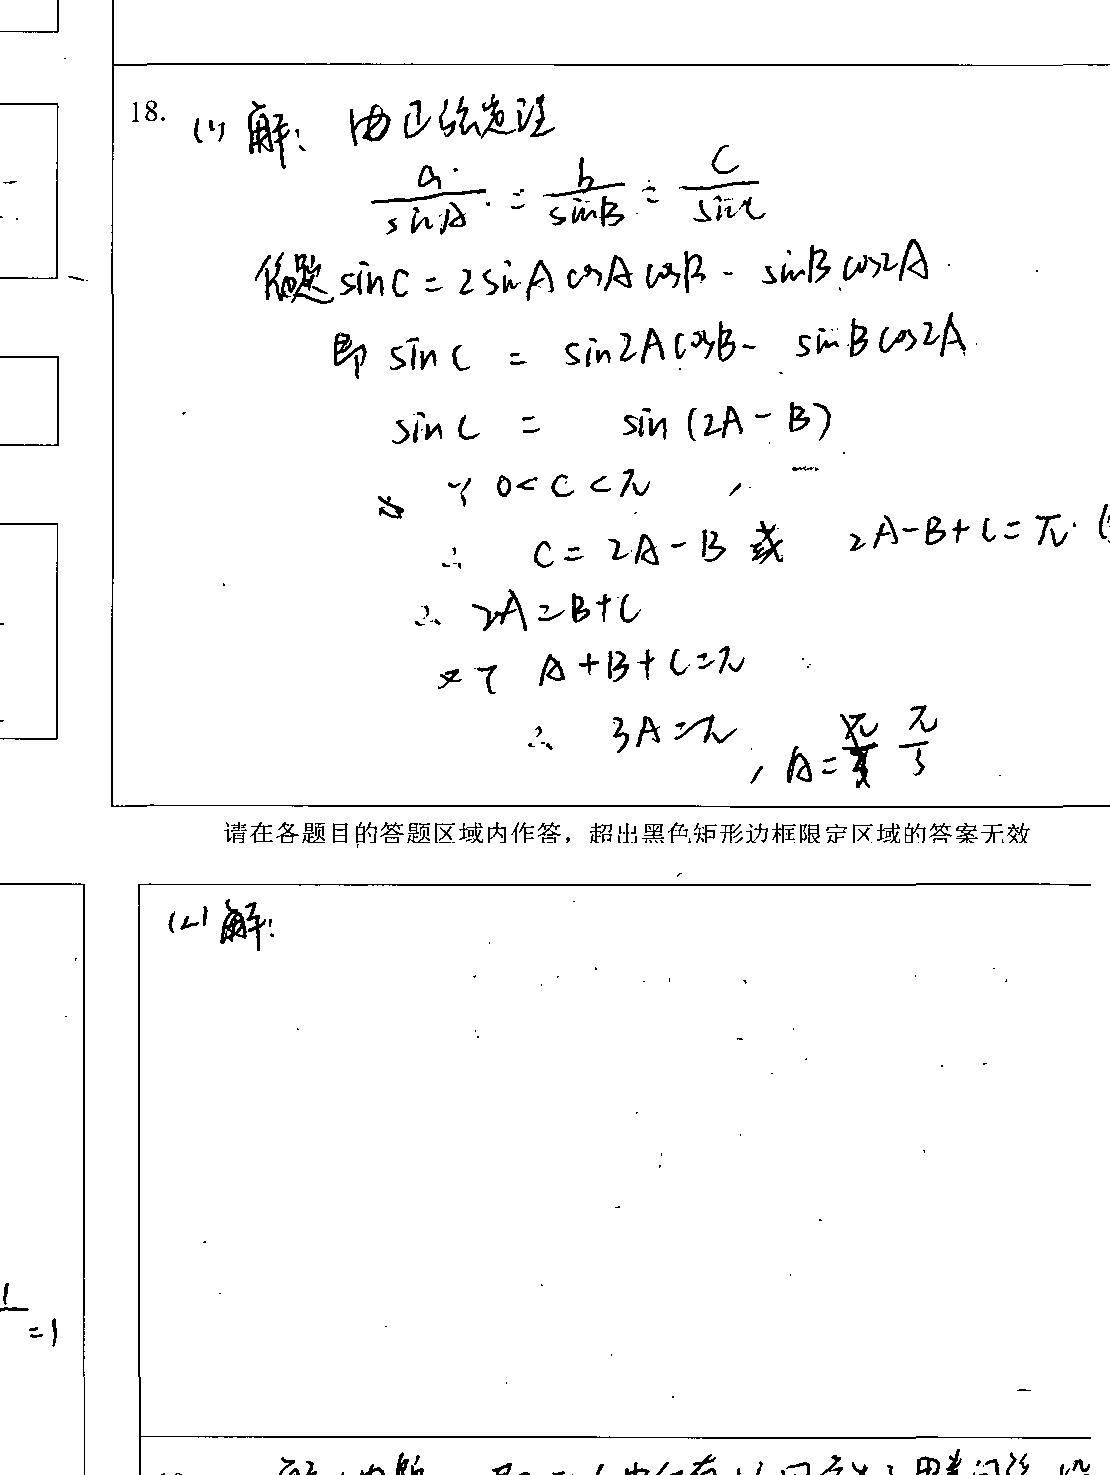 18.
(1) 解: 由正弦定理
a/sinA = b/sinB = c/sinC
依题 sinC = 2sinAcosAcosB - sinBcos2A
即 sinC = sin2AcosB - sinBcos2A
sinC = sin(2A-B)
∵ 0<C<π ,
∴ C = 2A-B 或 2A-B+C=π. (
∴ 2A=B+C
又∵ A+B+C=π
∴ 3A=π , A= π/3
请在各题目的答题区域内作答，超出黑色矩形边框限定区域的答案无效
(2) 解:
=1